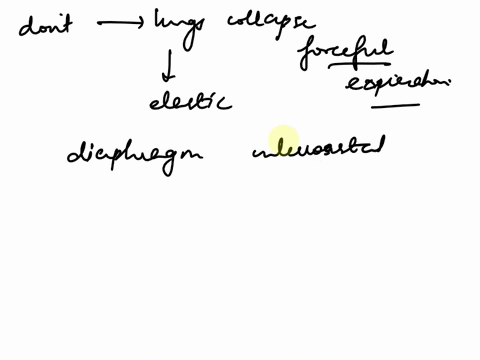 don't → lungs collapse
forceful
expiration
elastic
diaphragm intercostal